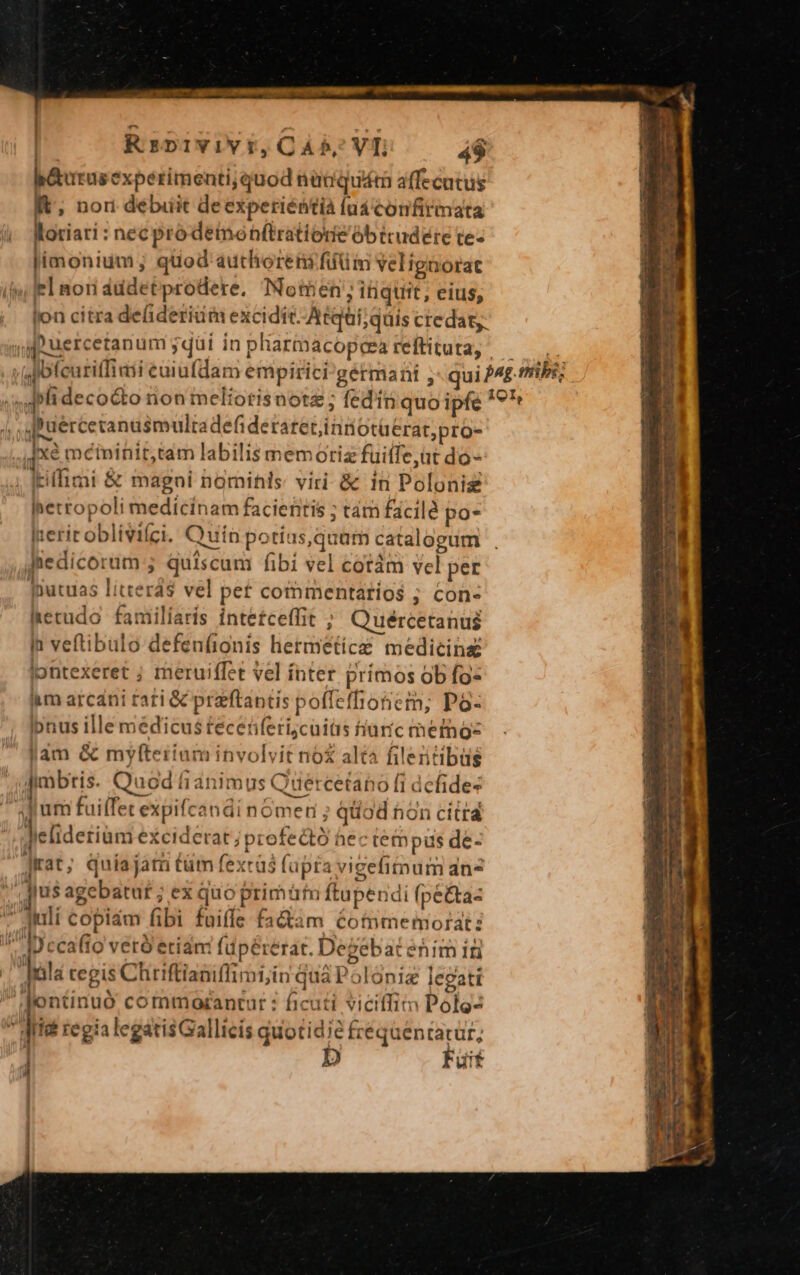 REDIVIVI, CAP. VI. 49
cturus experimenti, quod nunquàm assecutus
ſit, non debuit de experiẽntiâ ſuâ confirmata
gloriari: nec pro demonſtratione obtrudere te-
ſtimonium, quod authorem ſuum vel ignorat
vel non audet prodere. Nomen, inquit, eius,
non citra deſiderium excidit. Atqui, quis credat,
Quercetanum, qui in pharmacopœa reſtituta,
obſcuriſſimi cuiuſdam empirici germani, qui pag. mihi
decocto non melioris notæ, ſed in quo ipſe 191.
Quercetanus multa deſideraret, innotuerat, pro-
xè meminit, tam labilis memoriæ fuiſſe, ut do-
ctiſſimi & magni nominis viri & in Poloniæ
metropoli medicinam facientis, tàm facilè po-
tuerit obliviſci. Quin potius, quum catalogum
medicorum, quiscum ſibi vel coràm vel per
mutuas litteras vel per commentarios, con-
ſuetudo familiaris interceſſit, Quercetanus
in veſtibulo defenſionis hermeticæ medicinæ
contexeret, meruiſſet vel inter primos ob ſo-
lam arcani rari & præſtantis poſſeſſionem, Po-
lonus ille medicus recenſeri, cuius nunc memo-
riam & myſterium involvit nox alta ſilentibus
umbris. Quod ſi animus Quercetano ſi deſide-
rium fuiſſet expiſcandi nomen, quod non citrà
deſiderium exciderat, profectò nec tempus de-
erat, quia jam tùm ſextus ſupra vigeſimum an-
nus agebatur, ex quo primùm ſtupendi ſpecta-
culi copiam ſibi fuiſſe factam commemorat:
Occaſio verò etiam ſupererat. Degebat enim in
aula regis Chriſtianiſſimi, in quâ Poloniæ legati
continuò commorantur: ſicuti viciſſim Polo-
niæ regia legatis Gallicis quotidiè frequentatur.
D Fuit